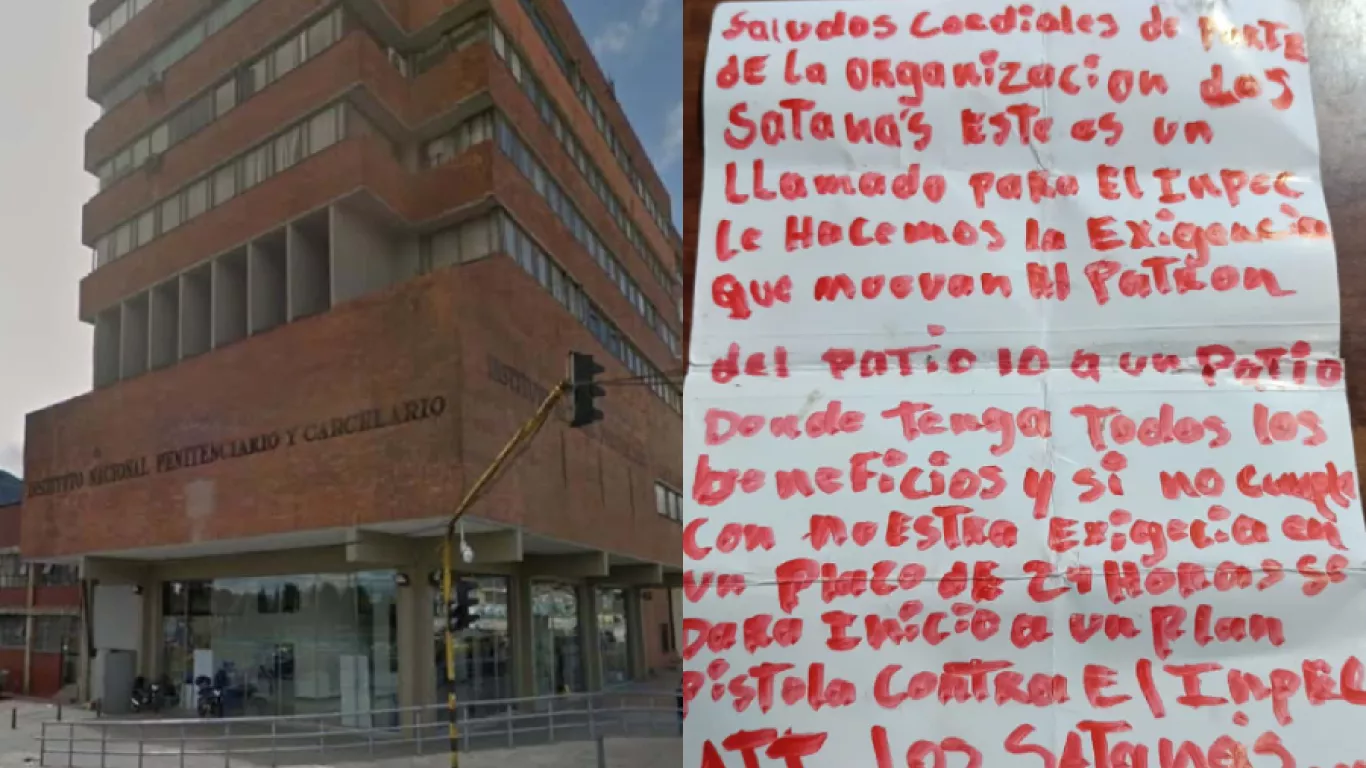 INSTITUTO NACIONAL PENITENCIARIO Y CARCELARIO
INSTITUTO
Saludos Cordiales de PARTE
DE La ORganizacion Los
Satana's Este es un
LLamado para El Inpec
Le Hacemos la Exigencia
que muevan El Patron
del Patio 10 a un Patio
Donde Tenga Todos los
beneficios y si no Cumple
Con nuestra Exigecia en
un Plazo DE 24 Horas se
Dara Inicio a un Plan
Pistola Contra El Inpec
ATT Los Satanas...